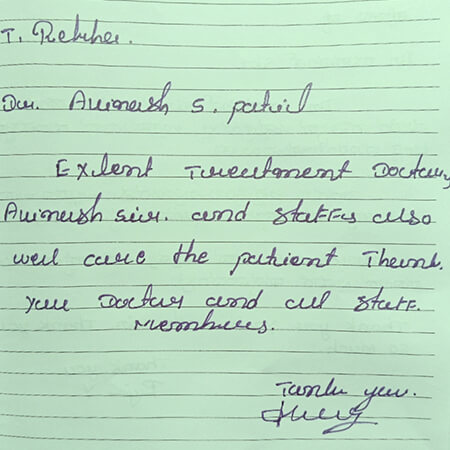 Dr. Avinash S. patil
Exlent Treentment Doctor,
Avinash sir. and staffs also
well care the patient Thank.
you Doctor and all staff.
Members.
Tanku you.